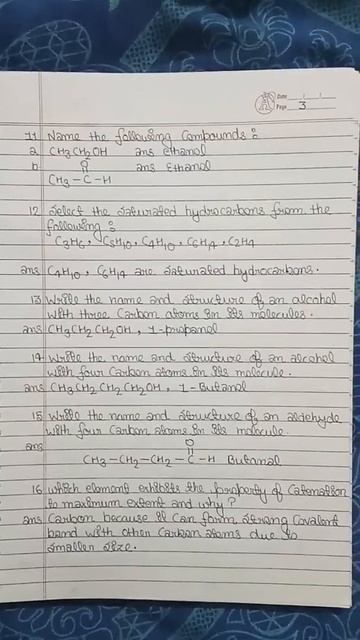 Date
Page 3
11 Name the following compounds :
a CH3CH2OH ans ethanol
b O ans Ethanal
CH3-C-H
12 Select the saturated hydrocarbons from the
following :
C3H6, C5H10, C4H10, C6H14, C2H4
ans C4H10, C6H14 are saturated hydrocarbons.
13 Write the name and structure of an alcohol
with three Carbon atoms in its molecules.
ans CH3CH2CH2OH, 1-propanol
14 Write the name and structure of an alcohol
with four Carbon atoms in its molecule.
ans CH3CH2CH2CH2OH, 1-Butanol
15 Write the name and structure of an aldehyde
with four Carbon atoms in its molecule.
ans O
CH3-CH2-CH2-C-H Butanal
16 which element exhibits the property of Catenation
to maximum extent and why?
ans Carbon because it can form strong Covalent
band with other Carbon atoms due to
smaller size.